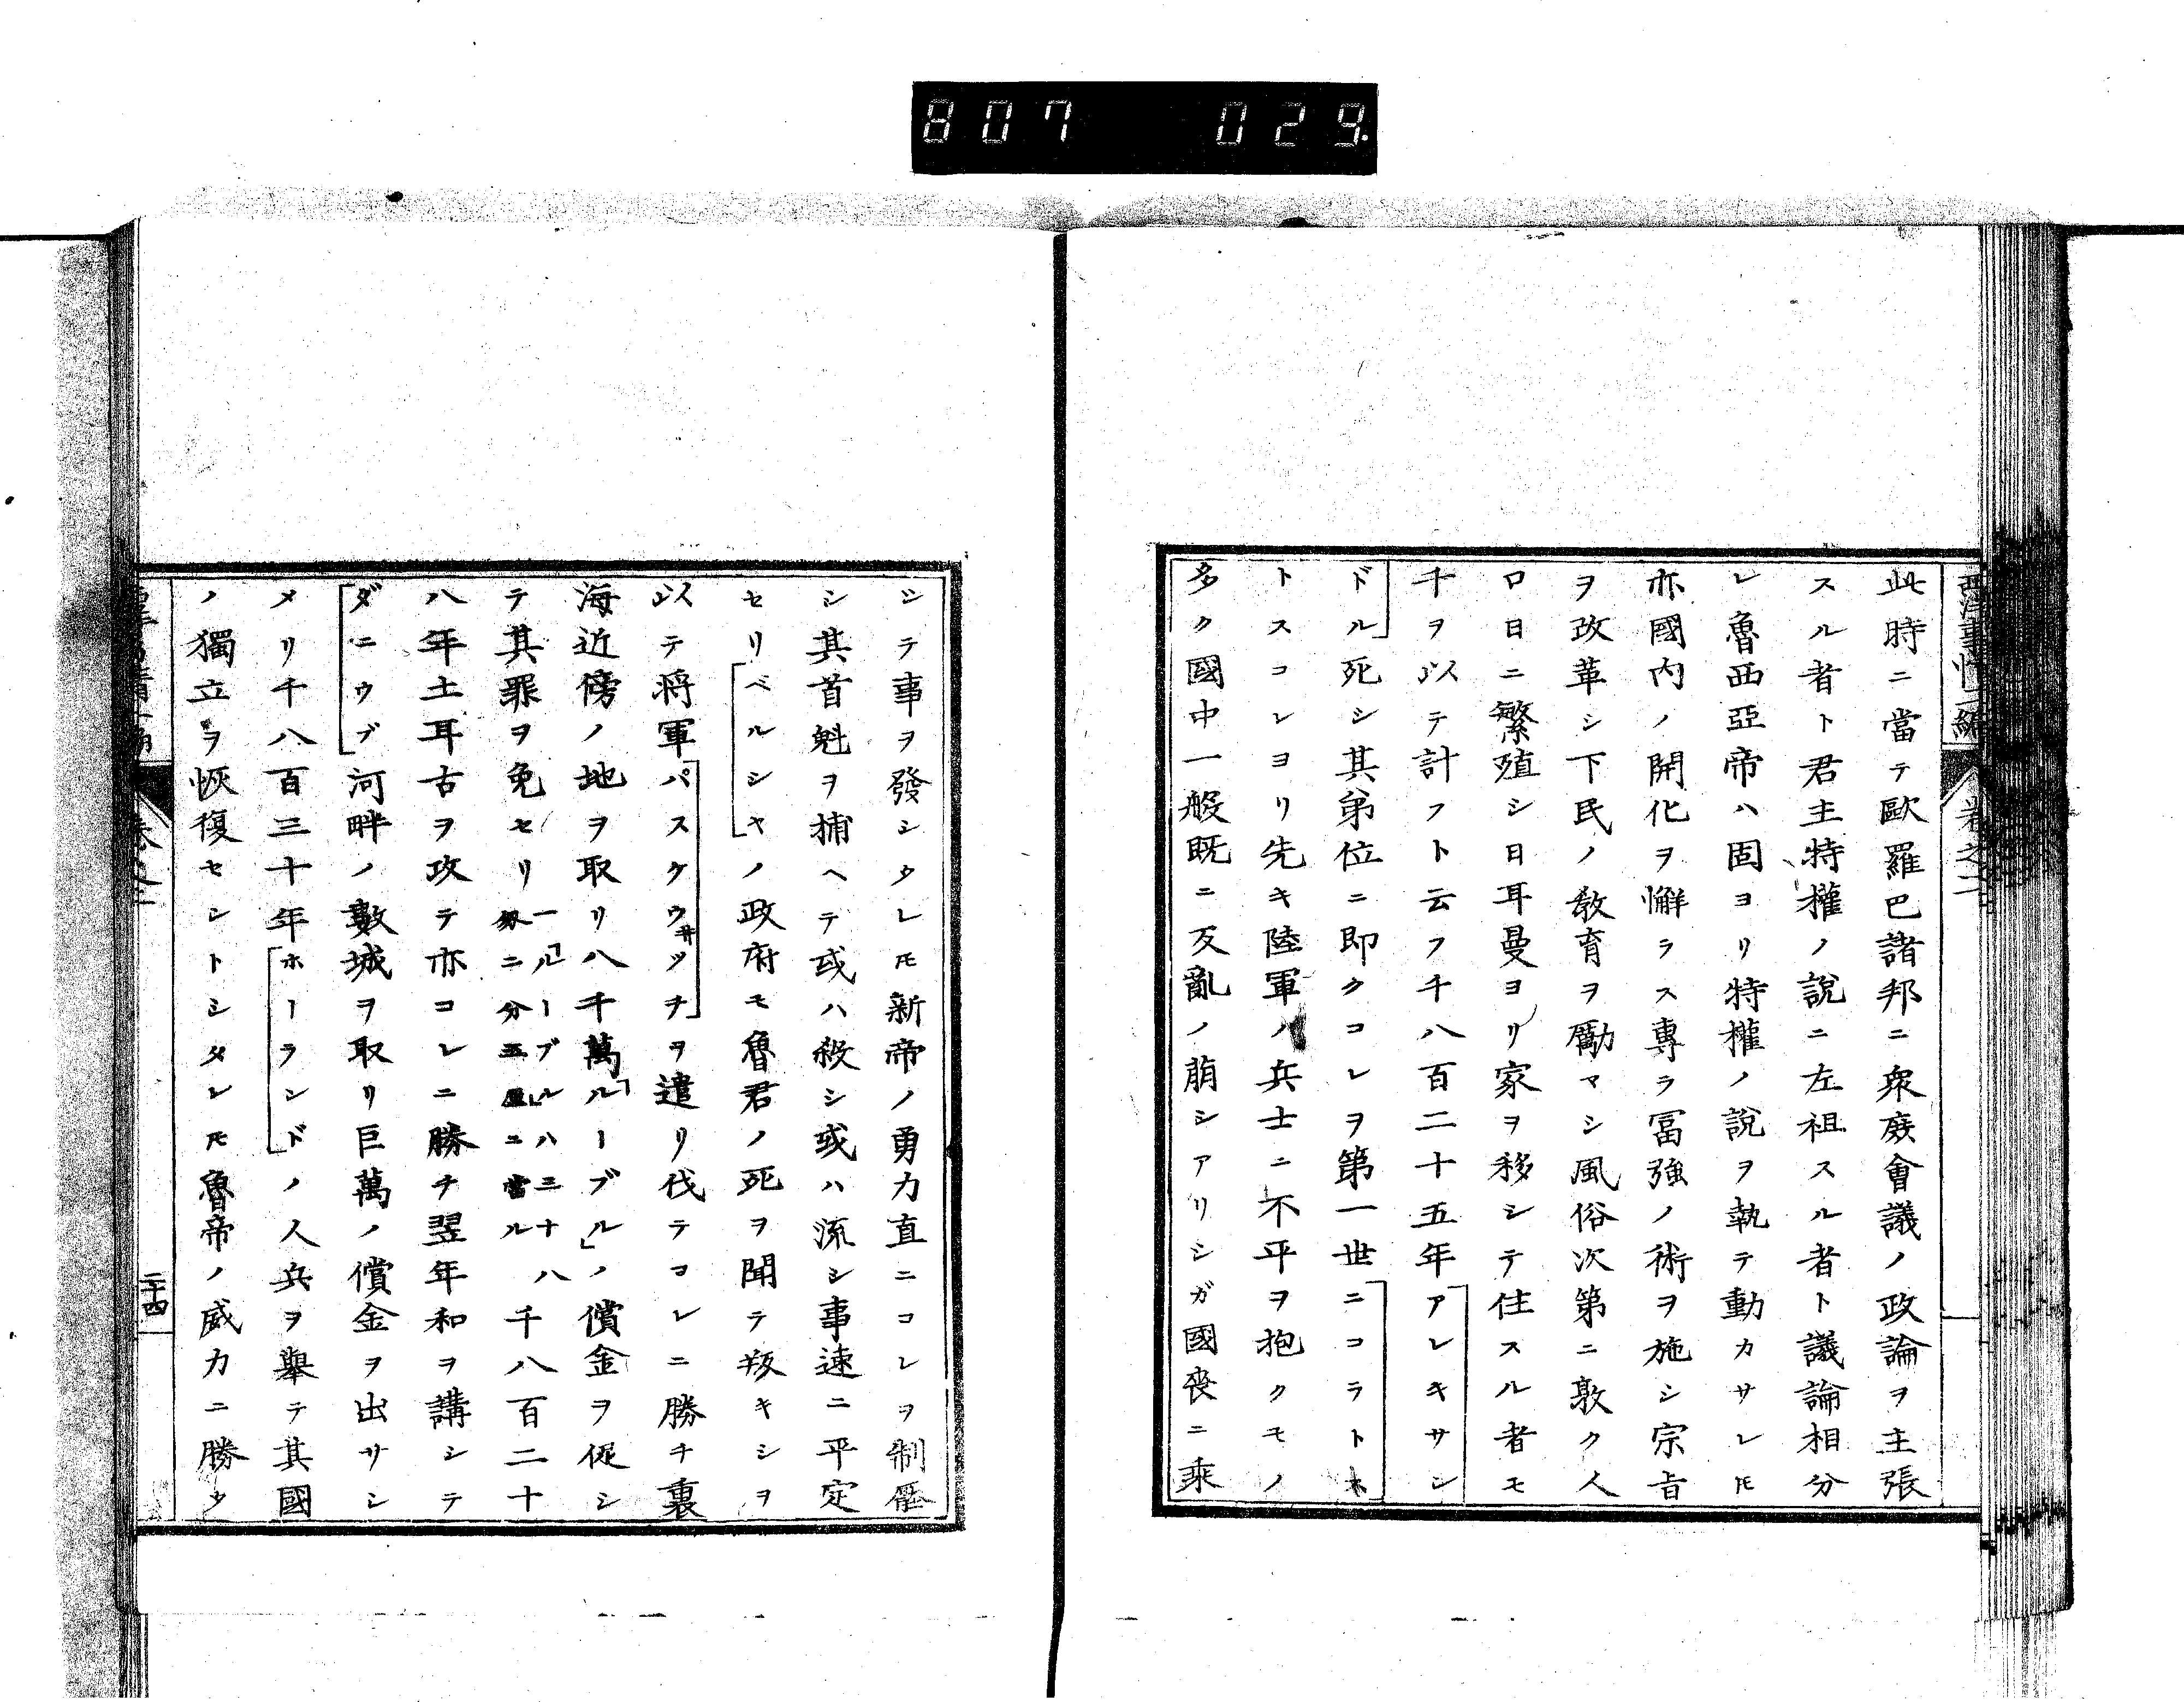 807 029
西洋事情二編 卷之二
此時ニ當テ歐羅巴諸邦ニ衆庶會議ノ政論ヲ主張
スル者ト君主特權ノ說ニ左袒スル者ト議論相分
レ魯西亞帝ハ固ヨリ特權ノ說ヲ執テ動カサレ𪜈
亦國內ノ開化ヲ懈ラス專ラ冨強ノ術ヲ施シ宗旨
ヲ改革シ下民ノ敎育ヲ勵マシ風俗次第ニ敦ク人
口日ニ繁殖シ日耳曼ヨリ家ヲ移シテ住スル者モ
千ヲ以テ計フト云フ千八百二十五年「アレキサン
ドル」死シ其弟位ニ即クコレヲ第一世「ニコラト」ス
トスコレヨリ先キ陸軍ノ兵士ニ不平ヲ抱クモノ
多ク國中一般既ニ反亂ノ萠シアリシガ國喪ニ乘
シテ事ヲ發シタレ𪜈新帝ノ勇力直ニコレヲ制壓
シ其首魁ヲ捕ヘテ或ハ殺シ或ハ流シ事速ニ平定
セリ「ペルシヤ」ノ政府モ魯君ノ死ヲ聞テ叛キシヲ
以テ將軍「パスケウ井ツチ」ヲ遣リ伐テコレニ勝チ裏
海近傍ノ地ヲ取リ八千萬「ルーブル」ノ償金ヲ促シ
テ其罪ヲ免セリ一「ルーブル」ハ三十八匁ニ分五厘ニ當ル千八百二十
八年土耳古ヲ攻テ亦コレニ勝チ翌年和ヲ講シテ
「ダニウブ」河畔ノ數城ヲ取リ巨萬ノ償金ヲ出サシ
メリ千八百三十年「ホーランド」ノ人兵ヲ擧テ其國
ノ獨立ヲ恢復セントシタレ𪜈魯帝ノ威力ニ勝ツ
二十四